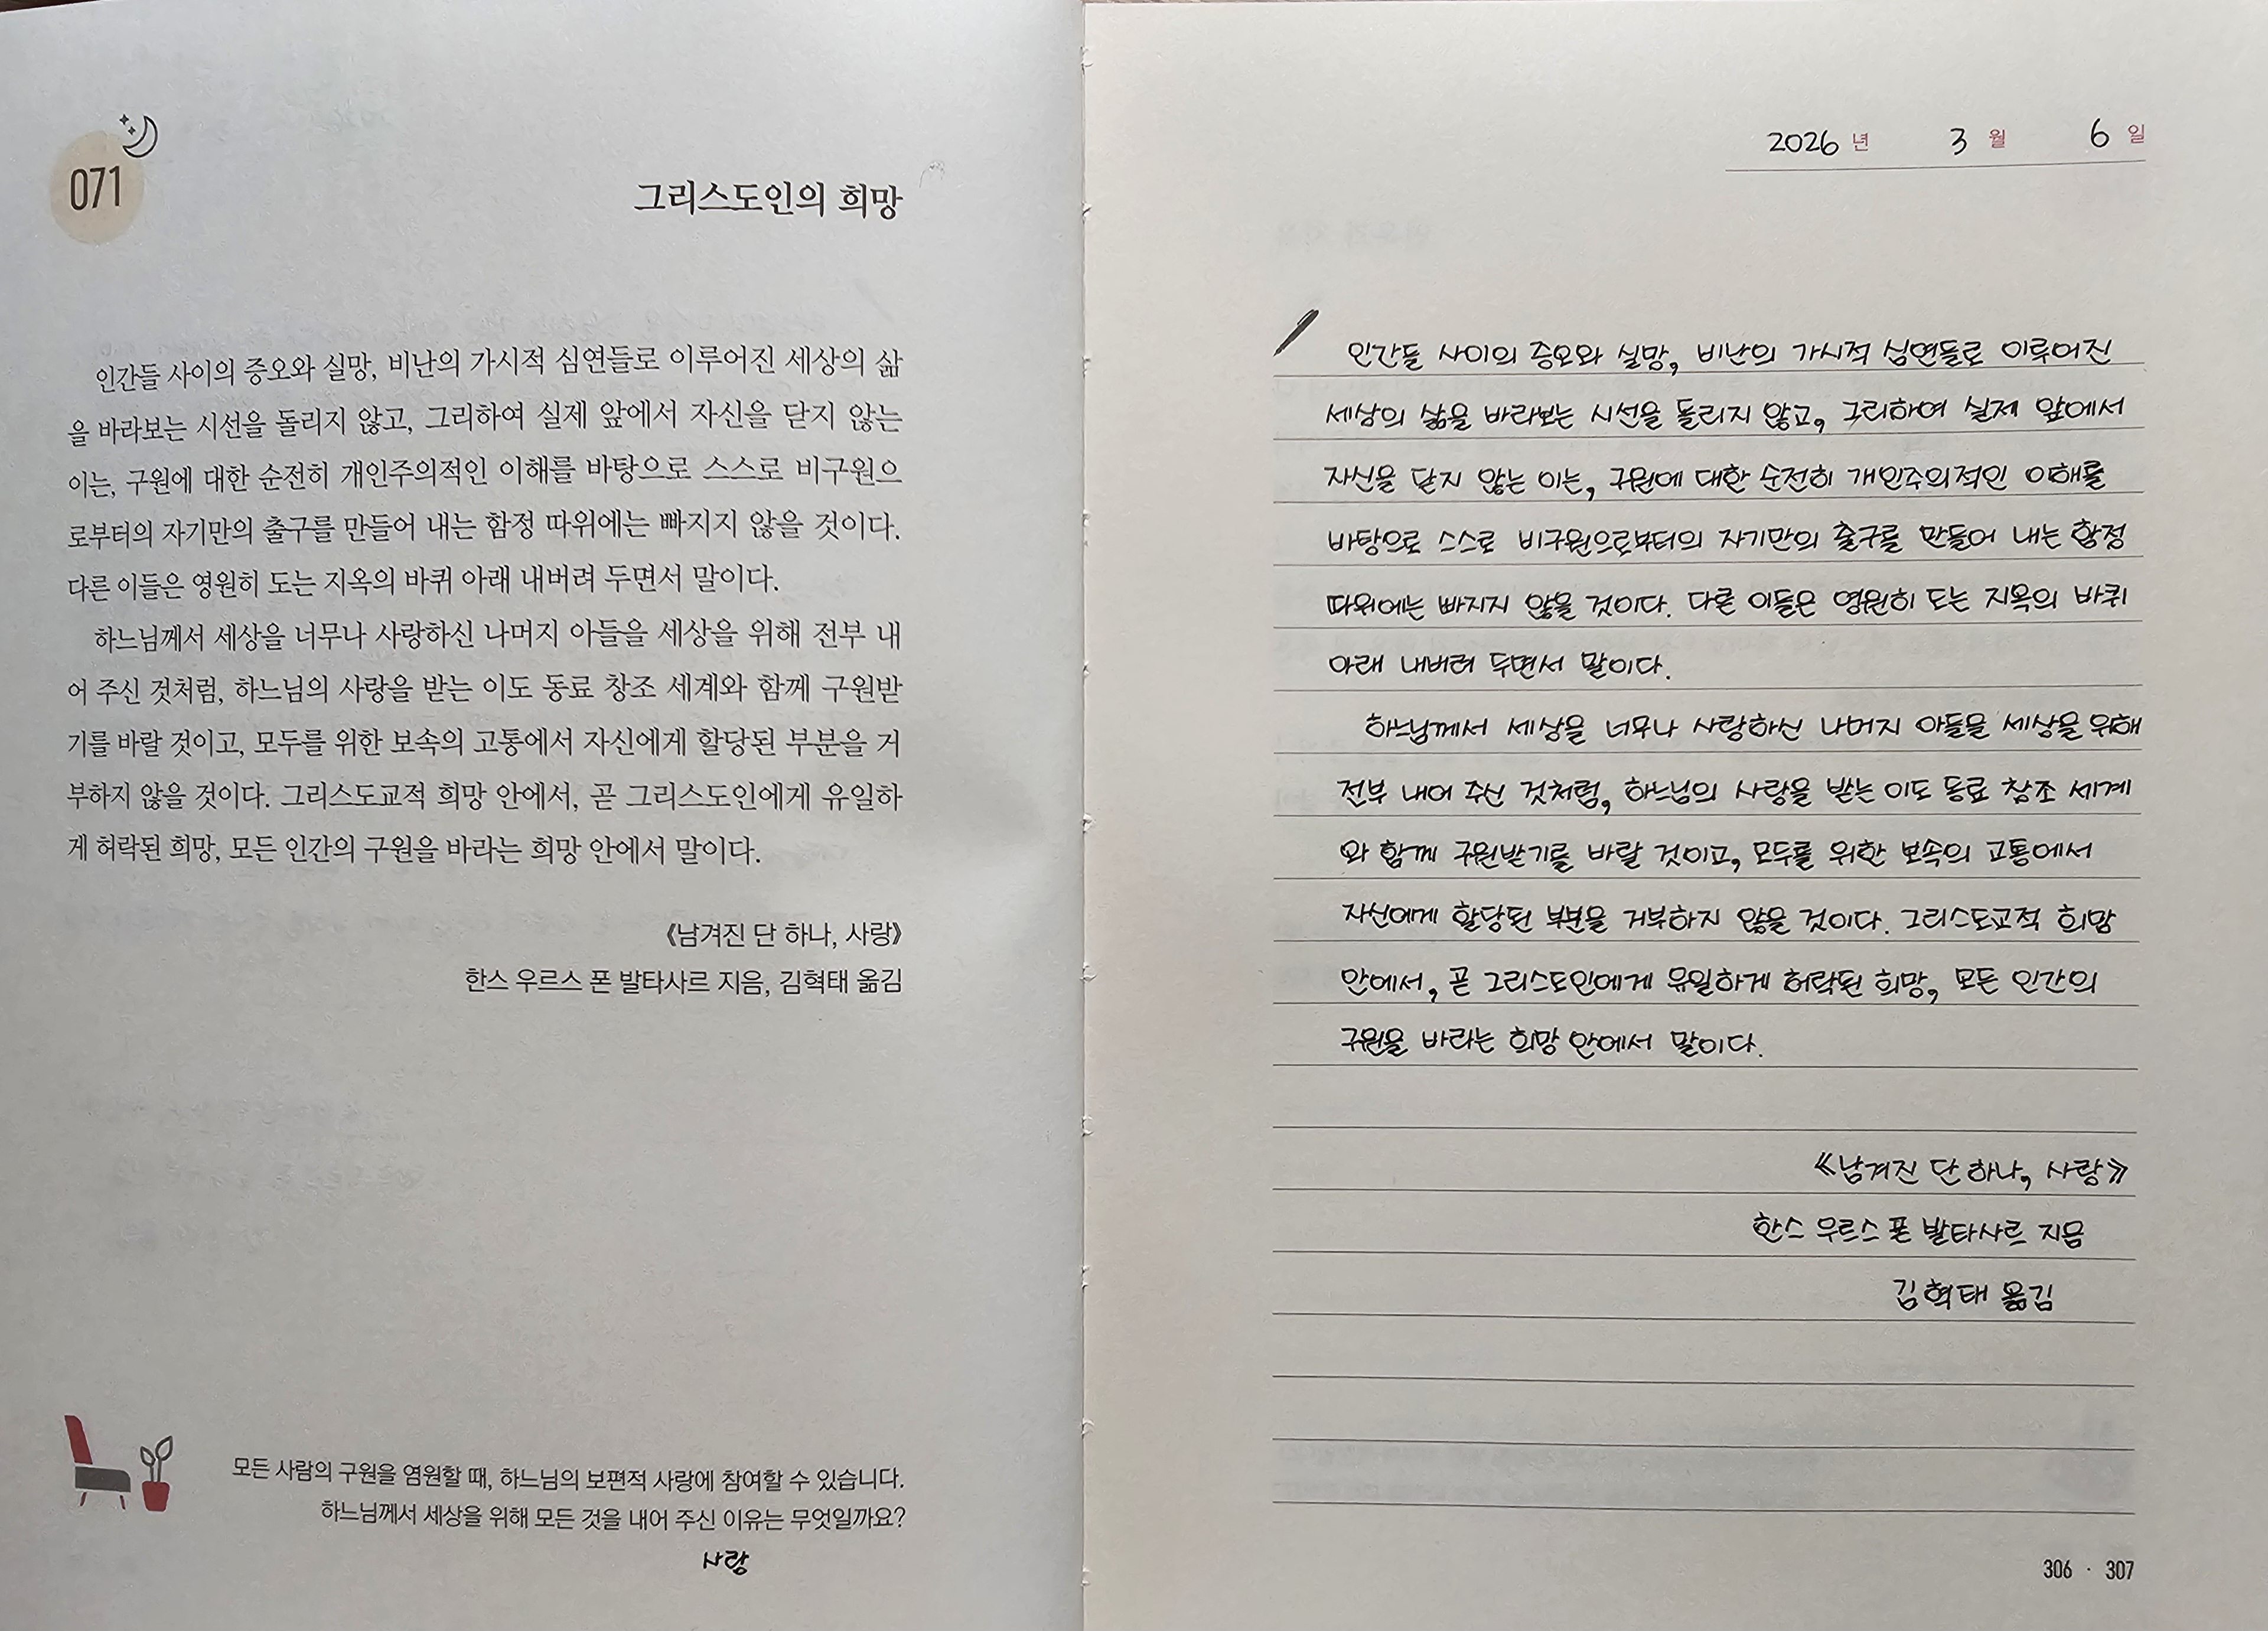 071
그리스도인의 희망
인간들 사이의 증오와 실망, 비난의 가시적 심연들로 이루어진 세상의 삶
을 바라보는 시선을 돌리지 않고, 그리하여 실제 앞에서 자신을 닫지 않는
이는, 구원에 대한 순전히 개인주의적인 이해를 바탕으로 스스로 비구원으
로부터의 자기만의 출구를 만들어 내는 함정 따위에는 빠지지 않을 것이다.
다른 이들은 영원히 도는 지옥의 바퀴 아래 내버려 두면서 말이다.
하느님께서 세상을 너무나 사랑하신 나머지 아들을 세상을 위해 전부 내
어 주신 것처럼, 하느님의 사랑을 받는 이도 동료 창조 세계와 함께 구원받
기를 바랄 것이고, 모두를 위한 보속의 고통에서 자신에게 할당된 부분을 거
부하지 않을 것이다. 그리스도교적 희망 안에서, 곧 그리스도인에게 유일하
게 허락된 희망, 모든 인간의 구원을 바라는 희망 안에서 말이다.
《남겨진 단 하나, 사랑》
한스 우르스 폰 발타사르 지음, 김혁태 옮김
모든 사람의 구원을 염원할 때, 하느님의 보편적 사랑에 참여할 수 있습니다.
하느님께서 세상을 위해 모든 것을 내어 주신 이유는 무엇일까요?
사랑
2026 년 3 월 6 일
인간들 사이의 증오와 실망, 비난의 가시적 심연들로 이루어진
세상의 삶을 바라보는 시선을 돌리지 않고, 그리하여 실제 앞에서
자신을 닫지 않는 이는, 구원에 대한 순전히 개인주의적인 이해를
바탕으로 스스로 비구원으로부터의 자기만의 출구를 만들어 내는 함정
따위에는 빠지지 않을 것이다. 다른 이들은 영원히 도는 지옥의 바퀴
아래 내버려 두면서 말이다.
하느님께서 세상을 너무나 사랑하신 나머지 아들을 세상을 위해
전부 내어 주신 것처럼, 하느님의 사랑을 받는 이도 동료 창조 세계
와 함께 구원받기를 바랄 것이고, 모두를 위한 보속의 고통에서
자신에게 할당된 부분을 거부하지 않을 것이다. 그리스도교적 희망
안에서, 곧 그리스도인에게 유일하게 허락된 희망, 모든 인간의
구원을 바라는 희망 안에서 말이다.
《남겨진 단 하나, 사랑》
한스 우르스 폰 발타사르 지음
김혁태 옮김
306 · 307